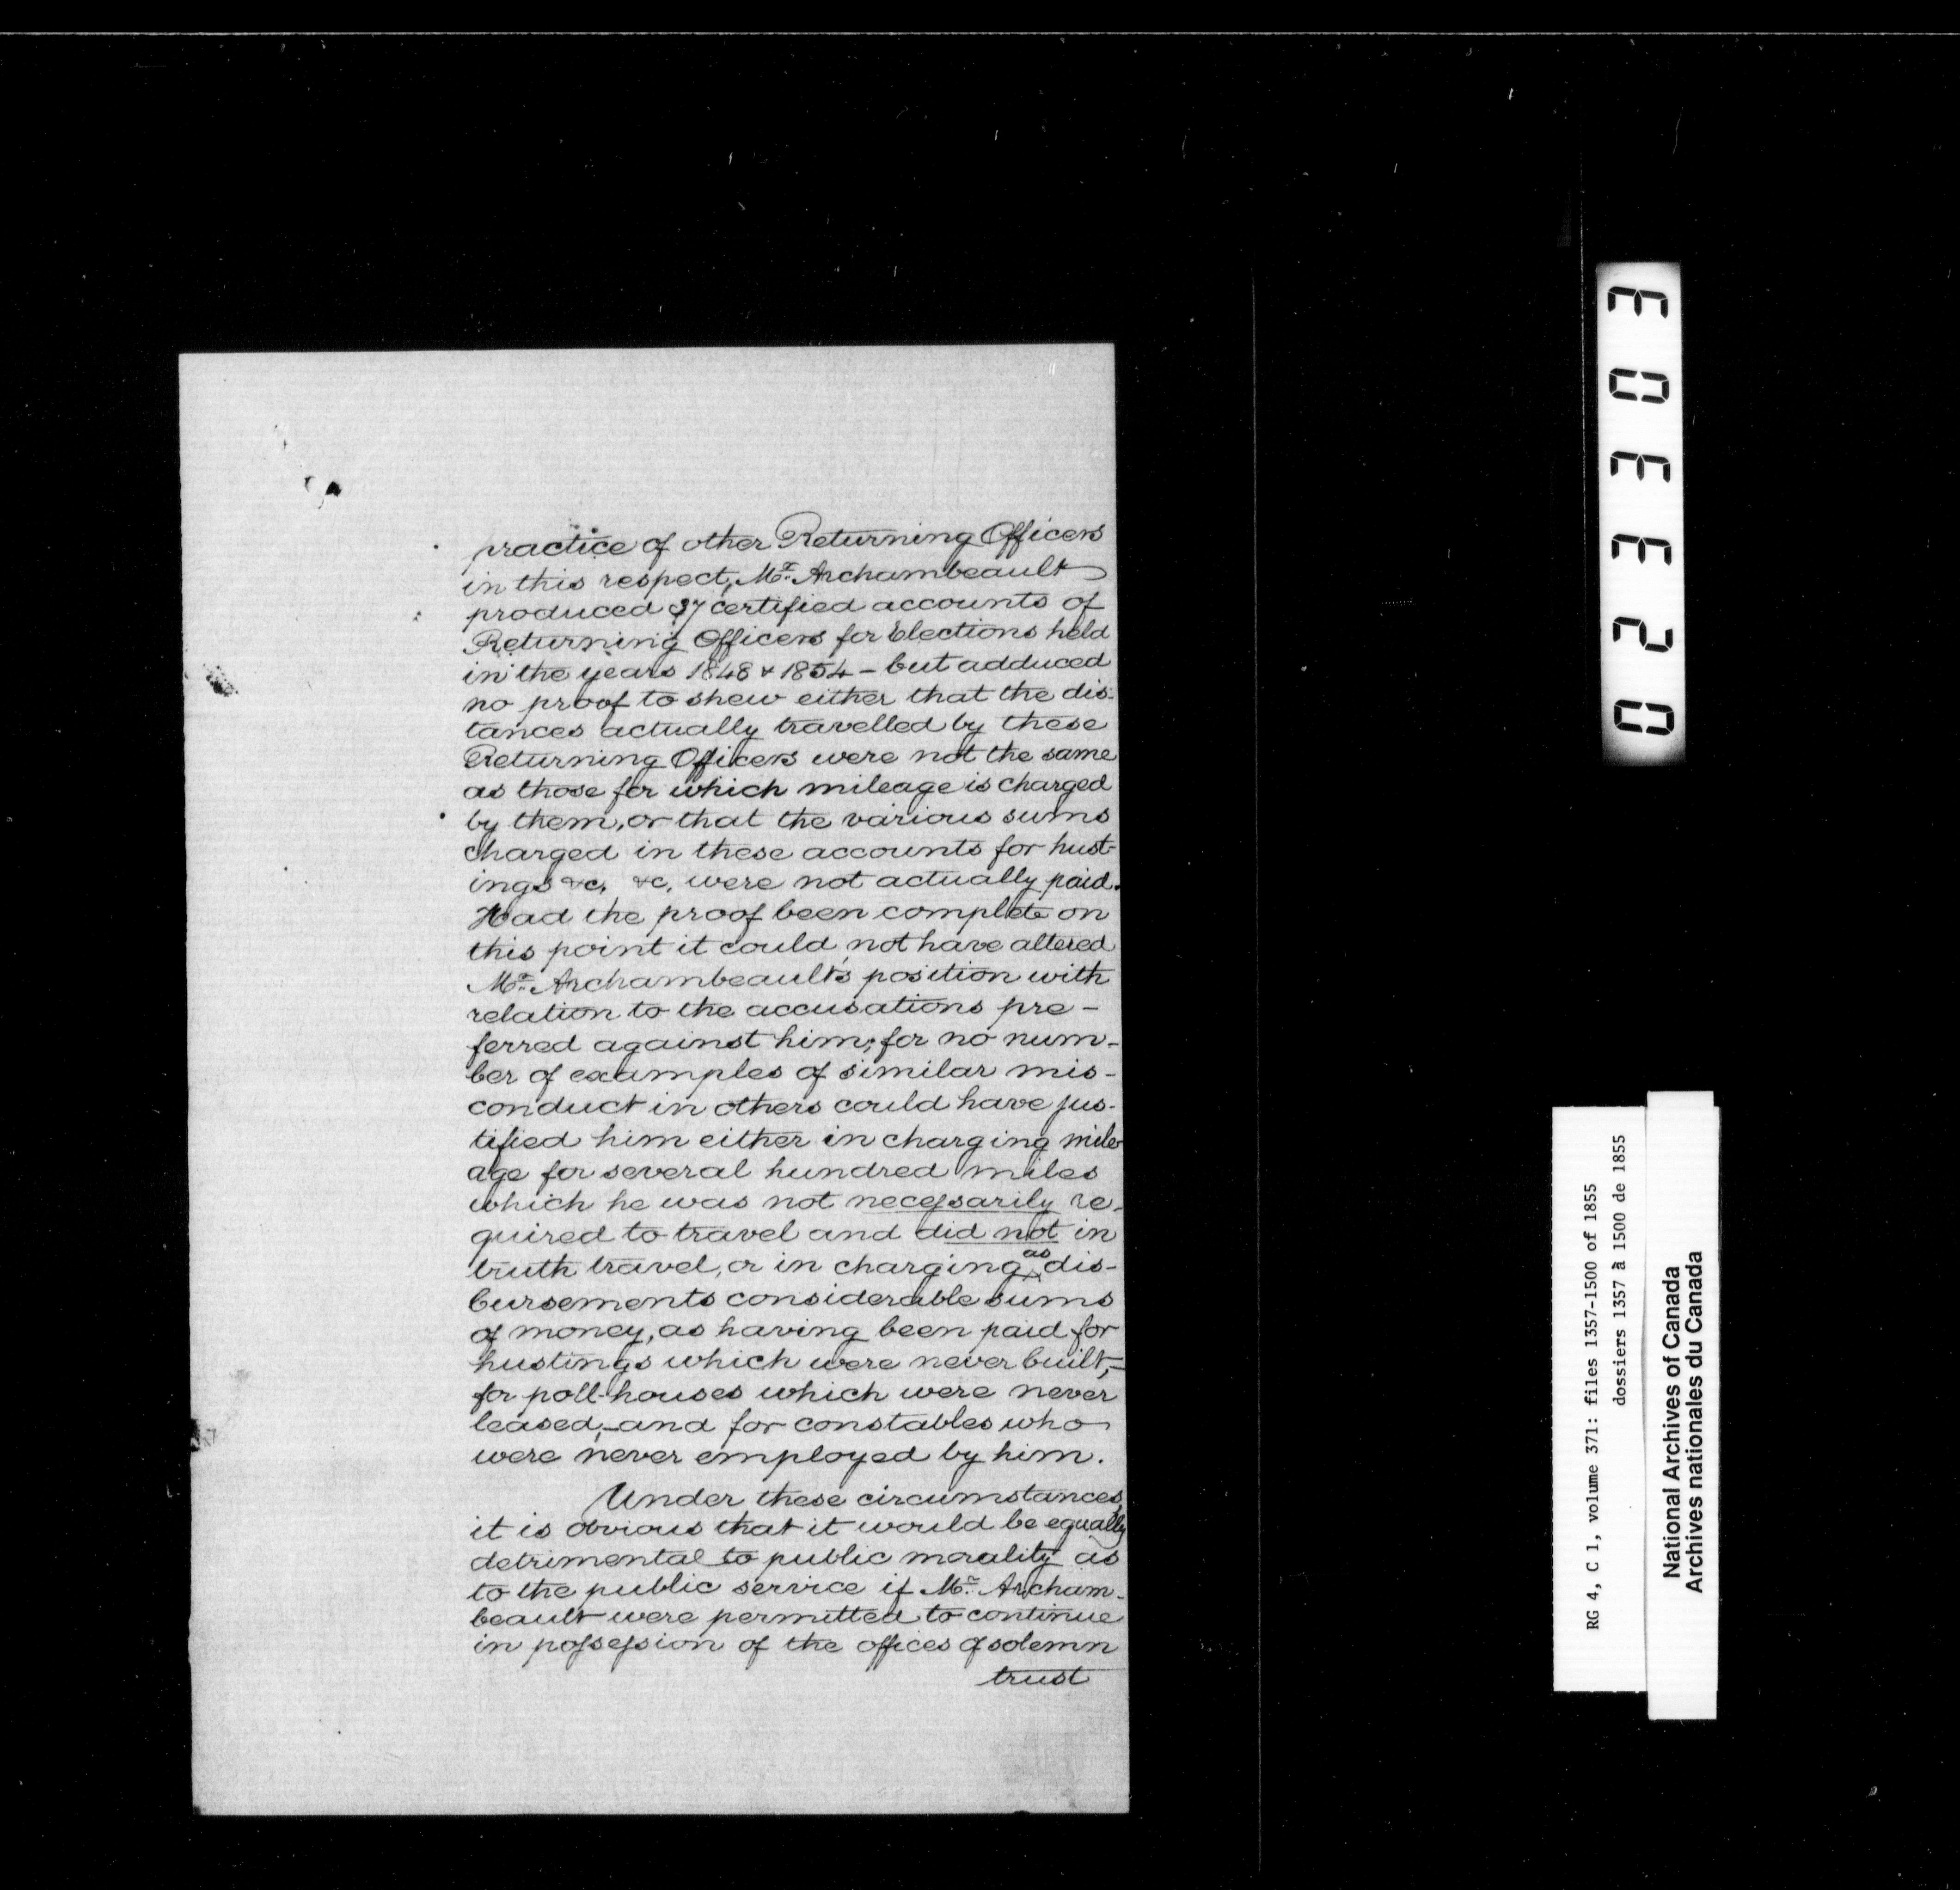 practice of other Returning Officers
in this respect, Mr. Archambeault
produced 37 certified accounts of
Returning Officers for Elections held
in the years 1848 & 1854 – but adduced
no proof to shew either that the dis-
tances actually travelled by these
Returning Officers were not the same
as those for which mileage is charged
by them, or that the various sums
charged in these accounts for hust-
ings &c. &c. were not actually paid.
Had the proof been complete on
this point it could not have altered
Mr. Archambeault's position with
relation to the accusations pre-
ferred against him; for no num-
ber of examples of similar mis-
conduct in others could have jus-
tified him either in charging mile-
age for several hundred miles
which he was not necessarily re-
quired to travel and did not in
truth travel, or in charging as dis-
bursements considerable sums
of money, as having been paid for
hustings which were never built,–
for poll-houses which were never
leased,–and for constables who
were never employed by him.
Under these circumstances,
it is obvious that it would be equally
detrimental to public morality as
to the public service if Mr. Archam-
beault were permitted to continue
in possession of the offices of solemn
trust
303320
RG 4, C 1, volume 371: files 1357-1500 of 1855
dossiers 1357 à 1500 de 1855
National Archives of Canada
Archives nationales du Canada